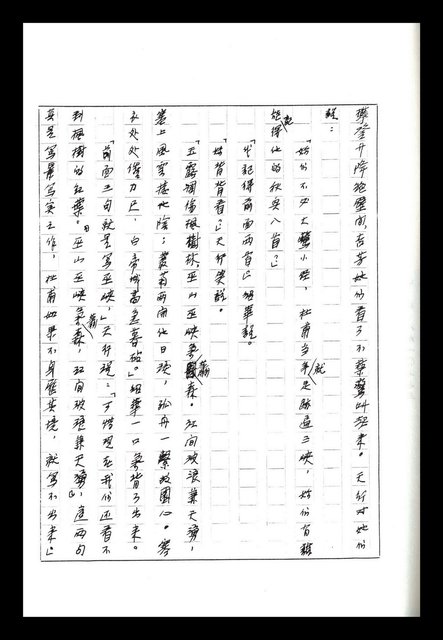 攀登升降絕壁間，古苓她們看了不禁驚叫起來。天行對她們
說：
「妳們不必大驚小怪，杜甫當年就足跡遍三峽，妳們有誰
記得他的秋興八首？」
「我記得前面兩首。」紹華說。
「妳背背看？」天行笑說。
「玉露凋傷楓樹林，巫山巫峽氣蕭森。江間波浪兼天湧，
塞上風雲接地陰；叢菊兩開他日淚，孤舟一繫故園心。寒
衣處處催刀尺，白帝城高急暮砧。」紹華一口氣背了出來。
「前面三句就是寫巫峽，」天行說：「可惜現在我們還看不
到楓樹的紅葉。『巫山巫峽氣蕭森，江間波浪兼天湧』，這兩句
真是寫景寫實之作，杜甫如果不身歷其境，就寫不出來。」